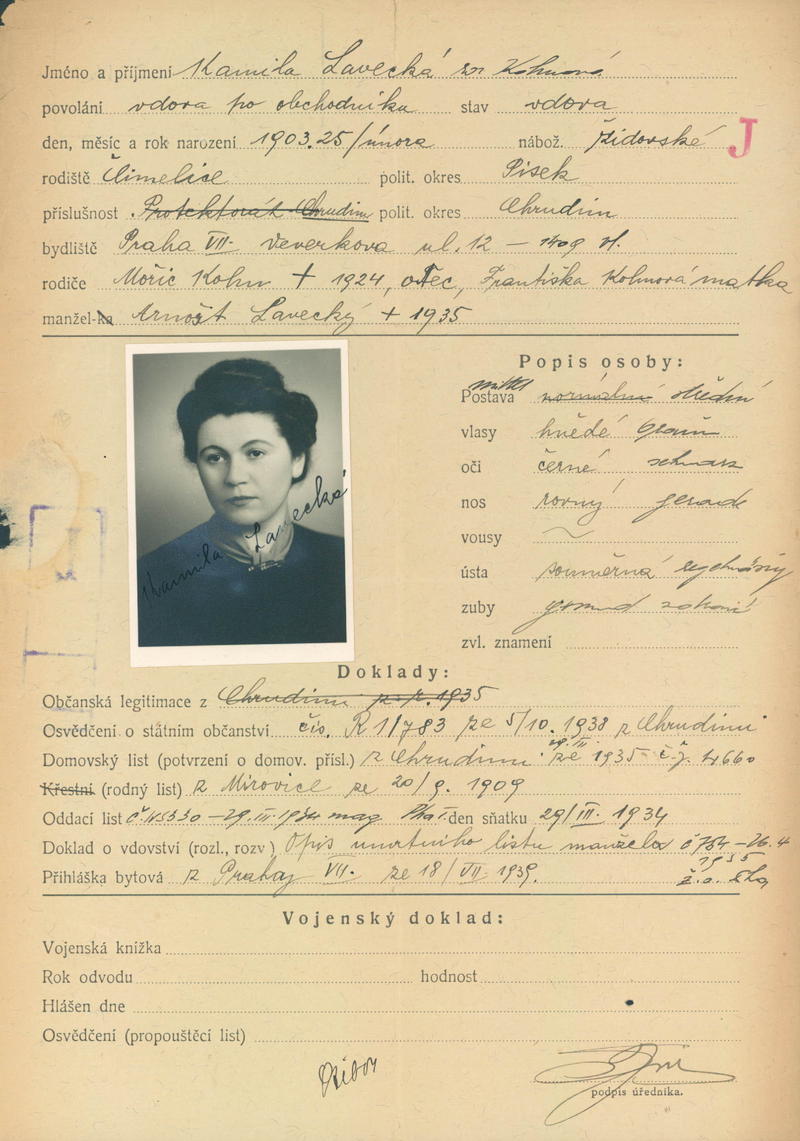 Jméno a příjmení Kamila Lavecká roz. Kohnová
povolání vdova po obchodníku stav vdova
den, měsíc a rok narození 1903. 25/února nábož. židovské J
rodiště Čimelice polit. okres Písek
příslušnost Protektorát Chrudim polit. okres Chrudim
bydliště Praha VII. Veverkova ul. 12 – 1409
rodiče Mořic Kohn + 1924, otec, Františka Kohnová matka
manžel-ka Arnošt Lavecký + 1935
Popis osoby:
mittel
Postava normální střední
vlasy hnědé braun
oči černé schwarz
nos rovný gerade
vousy
ústa souměrná
zuby gesund zdravé
zvl. znamení
Kamila Lavecká
Doklady:
Občanská legitimace z Chrudimi 1935
Osvědčení o státním občanství čís. R 1/783 ze 5/10. 1938 z Chrudimi
Domovský list (potvrzení o domov. přísl.) z Chrudimi ze 29. III. 1935 č.j. 4660
Křestní (rodný list) z Mirovice ze 20/9. 1909
Oddací list 29. III. 1934 mag. den sňatku 29/III. 1934
Doklad o vdovství (rozl., rozv) Opis úmrtního listu manžela č 754 – 26.4
1935
Přihláška bytová z Prahy VII. ze 18/VII. 1939.
Vojenský doklad:
Vojenská knížka
Rok odvodu hodnost
Hlášen dne
Osvědčení (propouštěcí list)
podpis úředníka.